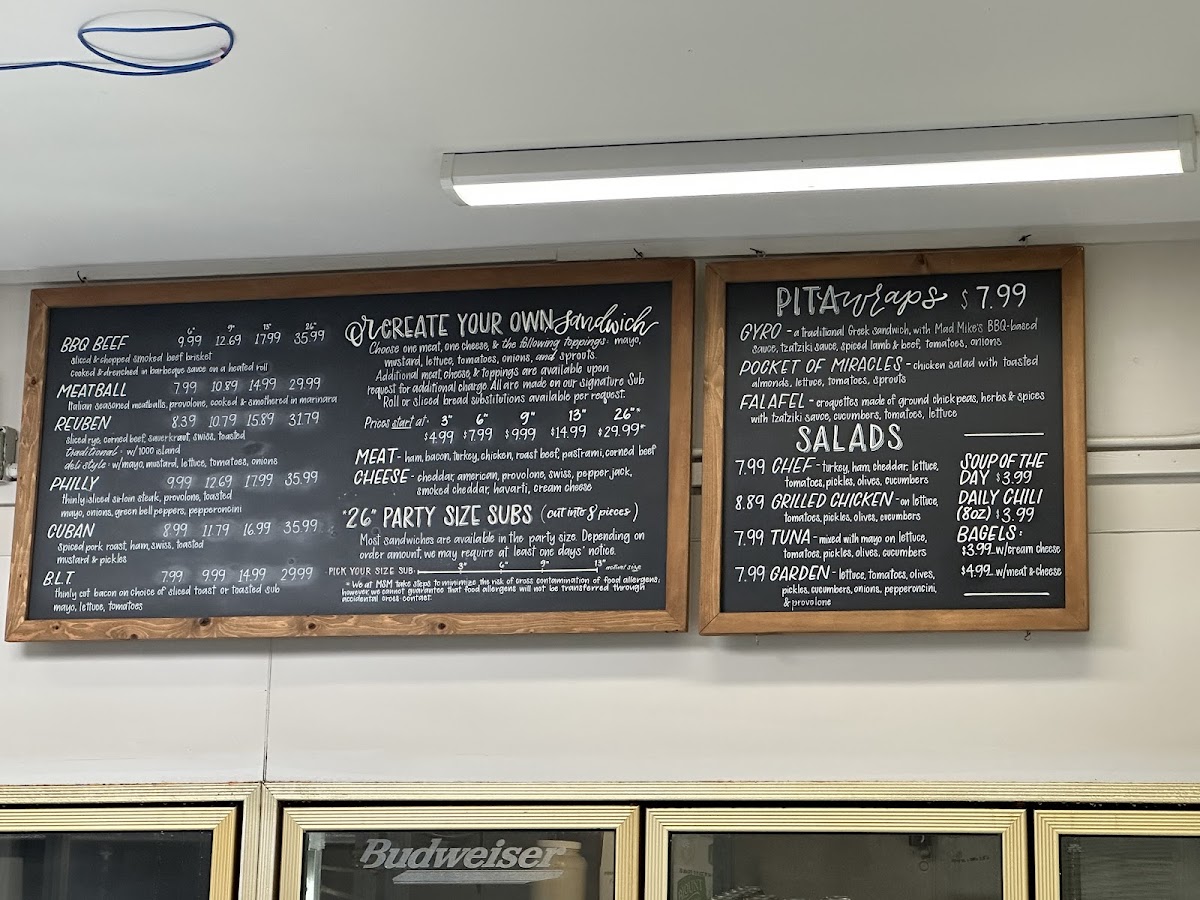 6" 9" 13" 26"
BBQ BEEF 9.99 12.69 17.99 35.99
sliced & chopped smoked beef brisket
cooked & drenched in barbeque sauce on a heated roll
MEATBALL 7.99 10.89 14.99 29.99
Italian seasoned meatballs, provolone, cooked & smothered in marinara
REUBEN 8.39 10.79 15.89 31.79
sliced rye, corned beef, sauerkraut, swiss, toasted
traditional - w/ 1000 island
deli style - w/mayo, mustard, lettuce, tomatoes, onions
PHILLY 9.99 12.69 17.99 35.99
thinly sliced sirloin steak, provolone, toasted
mayo, onions, green bell peppers, pepperoncini
CUBAN 8.99 11.79 16.99 35.99
spiced pork roast, ham, swiss, toasted
mustard & pickles
B.L.T. 7.99 9.99 14.99 29.99
thinly cut bacon on choice of sliced toast or toasted sub
mayo, lettuce, tomatoes
or CREATE YOUR OWN sandwich
Choose one meat, one cheese, & the following toppings: mayo,
mustard, lettuce, tomatoes, onions, and sprouts.
Additional meat, cheese, & toppings are available upon
request for additional charge. All are made on our signature Sub
Roll or sliced bread substitutions available per request.
Prices start at: 3" 6" 9" 13" 26"*
$4.99 $7.99 $9.99 $14.99 $29.99*
MEAT - ham, bacon, turkey, chicken, roast beef, pastrami, corned beef
CHEESE - cheddar, american, provolone, swiss, pepper jack,
smoked cheddar, havarti, cream cheese
*26" PARTY SIZE SUBS (cut into 8 pieces)
Most sandwiches are available in the party size. Depending on
order amount, we may require at least one days' notice.
PICK YOUR SIZE SUB: 3" 6" 9" 13" actual size
* We at MSM take steps to minimize the risk of cross contamination of food allergens;
however, we cannot guarantee that food allergens will not be transferred through
accidental cross-contact.
PITA wraps $7.99
GYRO - a traditional Greek sandwich, with Mad Mike's BBQ-based
sauce, tzatziki sauce, spiced lamb & beef, tomatoes, onions
POCKET OF MIRACLES - chicken salad with toasted
almonds, lettuce, tomatoes, sprouts
FALAFEL - croquettes made of ground chickpeas, herbs & spices
with tzatziki sauce, cucumbers, tomatoes, lettuce
SALADS
7.99 CHEF - turkey, ham, cheddar, lettuce,
tomatoes, pickles, olives, cucumbers
8.89 GRILLED CHICKEN - on lettuce,
tomatoes, pickles, olives, cucumbers
7.99 TUNA - mixed with mayo on lettuce,
tomatoes, pickles, olives, cucumbers
7.99 GARDEN - lettuce, tomatoes, olives,
pickles, cucumbers, onions, pepperoncini,
& provolone
SOUP OF THE
DAY $3.99
DAILY CHILI
(8oz) $3.99
BAGELS:
$3.99 w/cream cheese
$4.99 w/meat & cheese
Budweiser